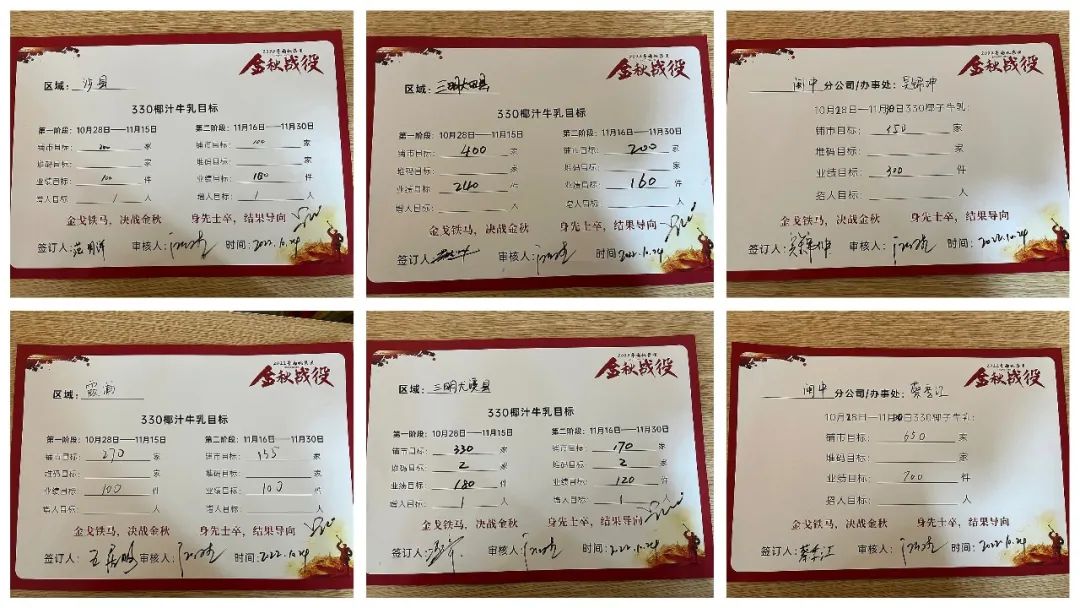 金秋战役
区域：沙县
330椰汁牛乳目标
第一阶段：10月28日——11月15日 第二阶段：11月16日——11月30日
铺市目标：200家 铺市目标：100家
堆码目标：家 堆码目标：家
业绩目标：100件 业绩目标：100件
增人目标：1人 增人目标：1人
金戈铁马，决战金秋 身先士卒，结果导向
签订人： 审核人： 时间：2022.10.24
金秋战役
区域：三明大田县
330椰汁牛乳目标
第一阶段：10月28日——11月15日 第二阶段：11月16日——11月30日
铺市目标：400家 铺市目标：200家
堆码目标：家 堆码目标：家
业绩目标：240件 业绩目标：160件
增人目标：人 增人目标：人
金戈铁马，决战金秋 身先士卒，结果导向
签订人： 审核人： 时间：2022.10.24
金秋战役
闽中分公司/办事处：
10月28日——11月30日330椰子牛乳：
铺市目标：450家
堆码目标：家
业绩目标：300件
招人目标：人
金戈铁马，决战金秋 身先士卒，结果导向
签订人： 审核人： 时间：2022.10.24
金秋战役
区域：霞浦
330椰汁牛乳目标
第一阶段：10月28日——11月15日 第二阶段：11月16日——11月30日
铺市目标：270家 铺市目标：155家
堆码目标：家 堆码目标：家
业绩目标：100件 业绩目标：100件
增人目标：人 增人目标：人
金戈铁马，决战金秋 身先士卒，结果导向
签订人： 审核人： 时间：2022.10.24
金秋战役
区域：三明尤溪县
330椰汁牛乳目标
第一阶段：10月28日——11月15日 第二阶段：11月16日——11月30日
铺市目标：330家 铺市目标：170家
堆码目标：2家 堆码目标：2家
业绩目标：180件 业绩目标：120件
增人目标：1人 增人目标：1人
金戈铁马，决战金秋 身先士卒，结果导向
签订人： 审核人： 时间：2022.10.24
金秋战役
闽中分公司/办事处：蔡孝江
10月28日——11月30日330椰子牛乳：
铺市目标：650家
堆码目标：家
业绩目标：700件
招人目标：人
金戈铁马，决战金秋 身先士卒，结果导向
签订人：蔡孝江 审核人： 时间：2022.10.24